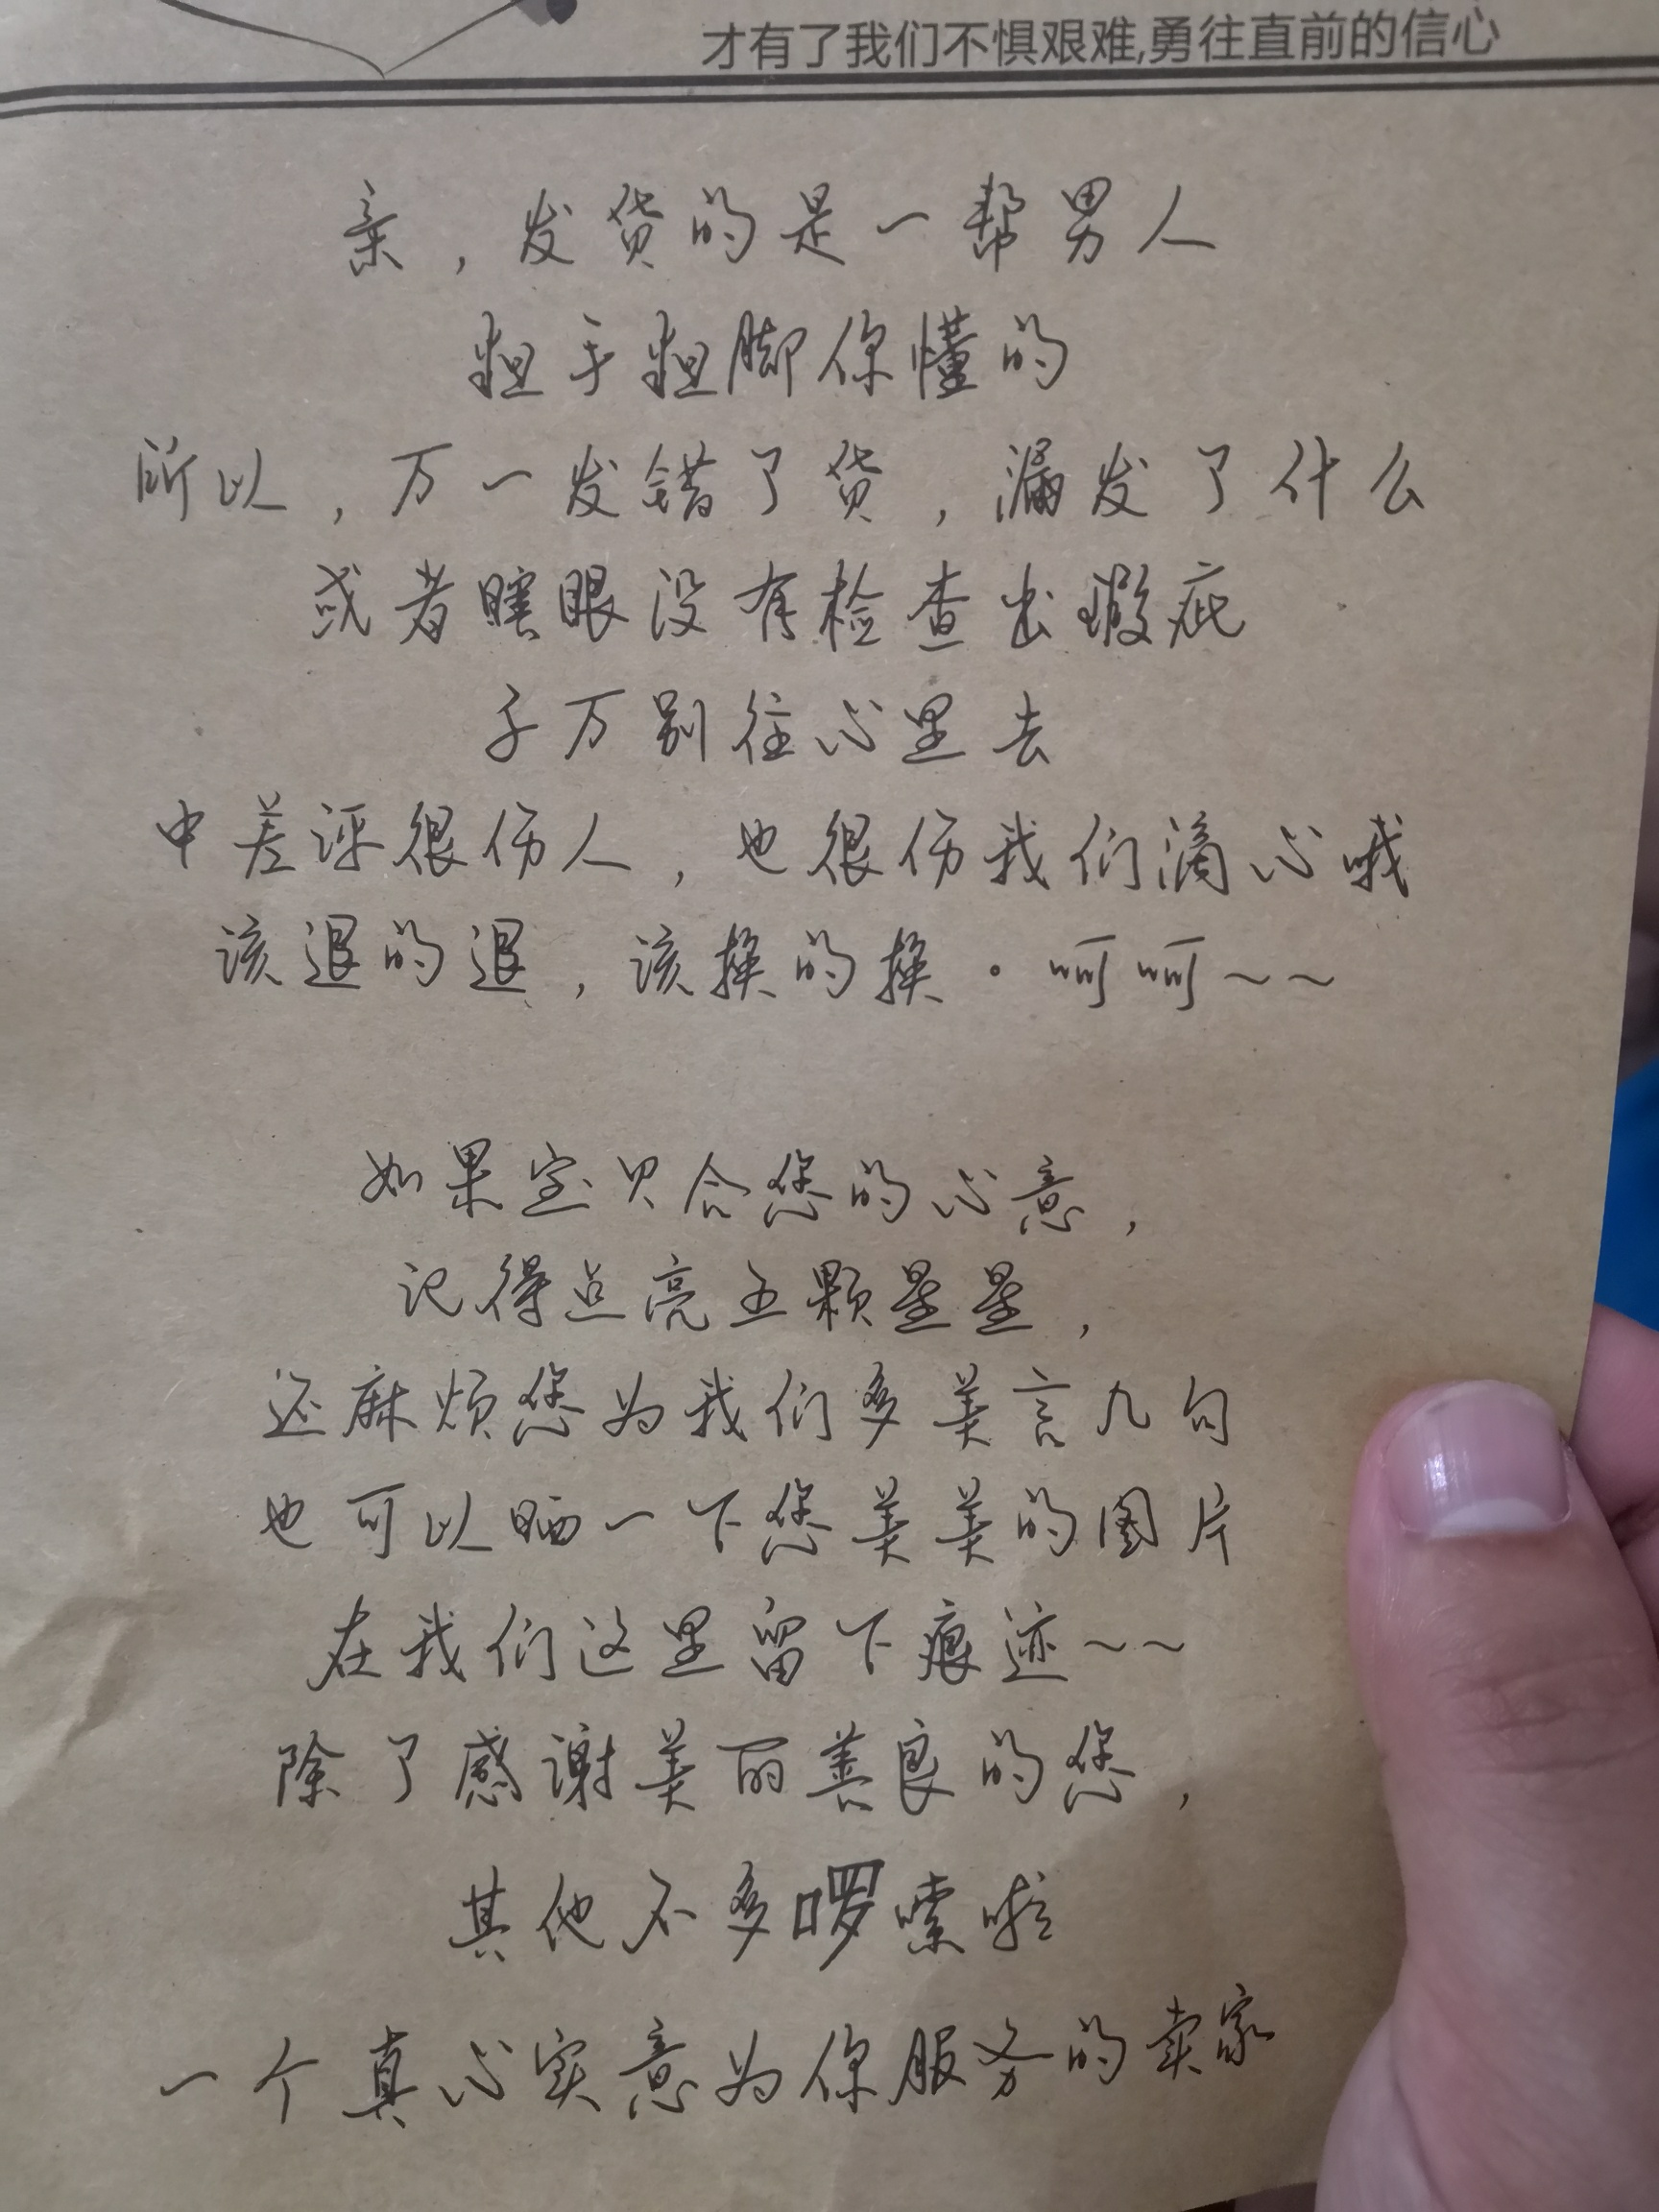 才有了我们不惧艰难,勇往直前的信心
亲，发货的是一帮男人
粗手粗脚你懂的
所以，万一发错了货，漏发了什么
或者瞎眼没有检查出瑕疵
千万别往心里去
中差评很伤人，也很伤我们滴心哦
该退的退，该换的换。呵呵~~
如果宝贝合您的心意，
记得点亮五颗星星，
还麻烦您为我们多美言几句
也可以晒一下您美美的图片
在我们这里留下痕迹~~
除了感谢美丽善良的您，
其他不多啰嗦啦
一个真心实意为你服务的卖家